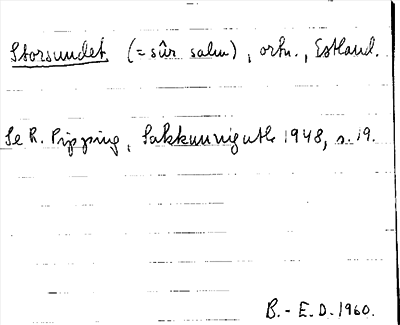 Storsundet (= sûr salm), ortn., Estland.
Se R. Pipping, Sakkunnigutl. 1948, s. 19.
B. - E. D. 1960.